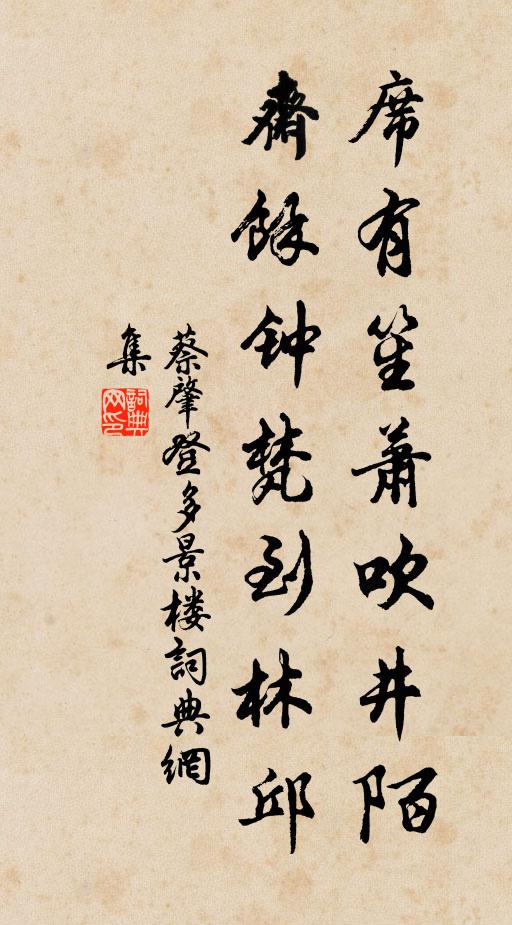 席有笙萧吹井陌
斋餘钟梵到林邱
蔡肇登多景楼詞典網
集
詞典网印